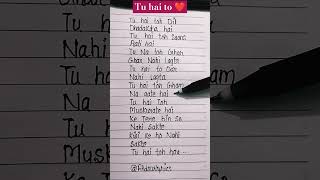 Tu hai to ❤️
Tu hai toh Dil
Dhadakta hai
Tu hai toh Saans
Aati hai
Tu Na toh Ghar
Ghar Nahi Lagta
Tu hai to Dar
Nahi Lagta
Tu hai toh Gham
Na aate hai
Tu hai Toh
Muskurate hai
Ke Tere bin Se
Nahi Sakte
Kisi ke ho Nahi
Sakte
Tu hai toh hau...